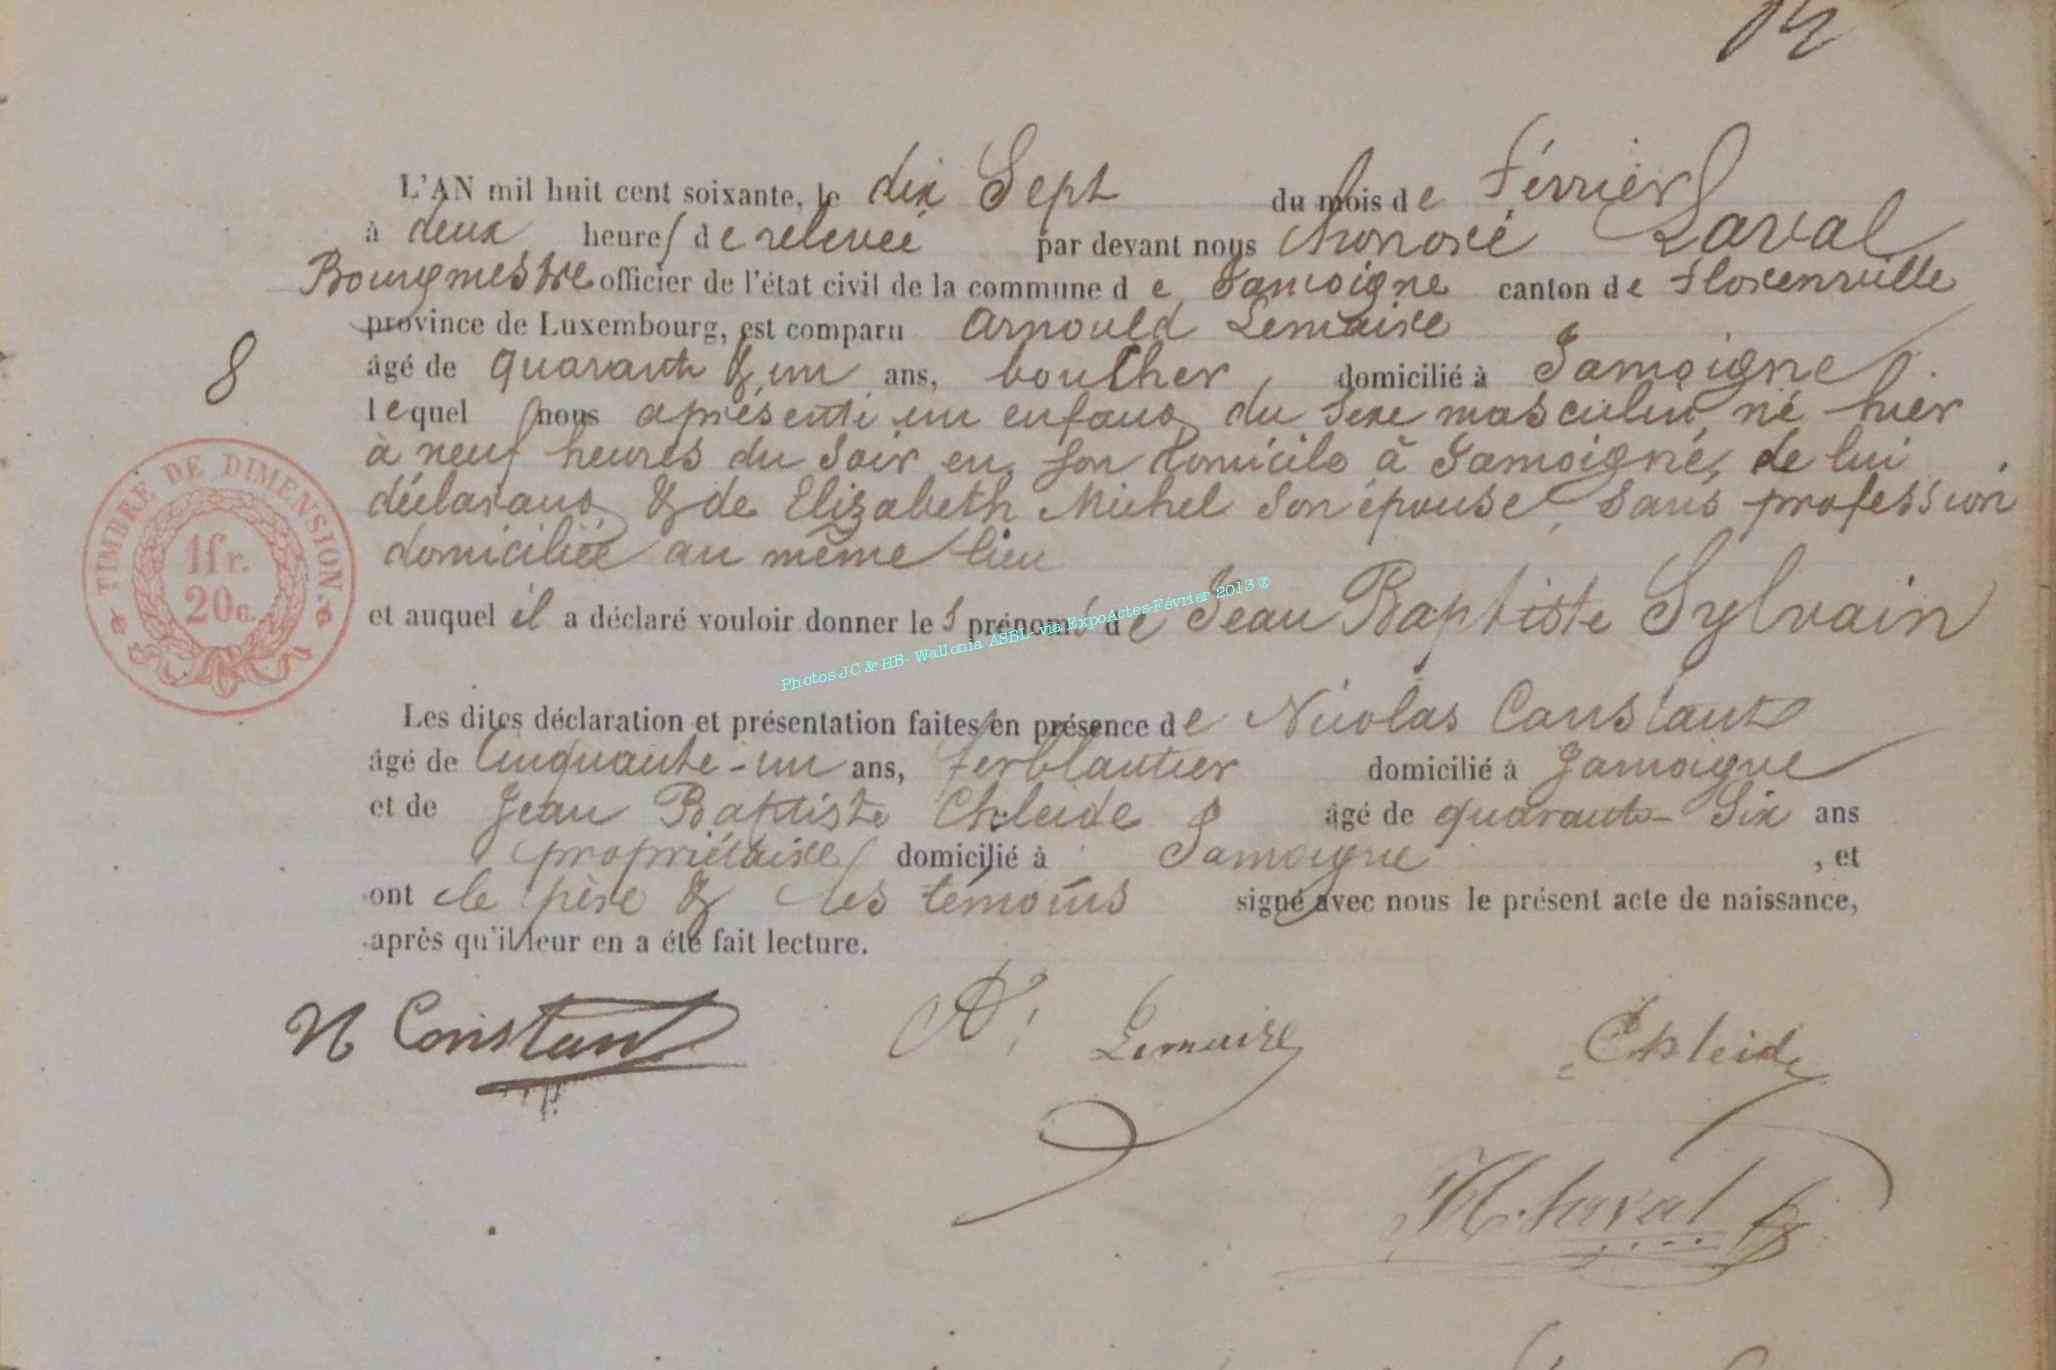 L'AN mil huit cent soixante, le dix Sept du mois de Février
à deux heures de relevée par devant nous honoré Laval
Bourgmestre officier de l'état civil de la commune de Jamoigne canton de Florenville
province de Luxembourg, est comparu Arnould Lemaire
âgé de quarante & un ans, boucher, domicilié à Jamoigne
8
lequel nous a présenté un enfant du sexe masculin, né hier
à neuf heures du soir en son domicile à Jamoigne, de lui
déclarant & de Elizabeth Michel son épouse, sans profession
domiciliée au même lieu
TIMBRE DE DIMENSION.
1fr.
20c.
et auquel il a déclaré vouloir donner les prénoms de Jean Baptiste Sylvain
Photos JC & HB- Wallonia ASBL- via ExpoActes-Février 2013 ®
Les dites déclaration et présentation faites en présence de Nicolas Constant
âgé de Cinquante-un ans, ferblantier domicilié à Jamoigne
et de Jean Baptiste Ekleide âgé de quarante-Six ans
propriétaire domicilié à Jamoigne, et
ont le père & les témoins signé avec nous le présent acte de naissance,
après qu'il leur en a été fait lecture.
N Constant A. Lemaire Ekleide
H. Laval